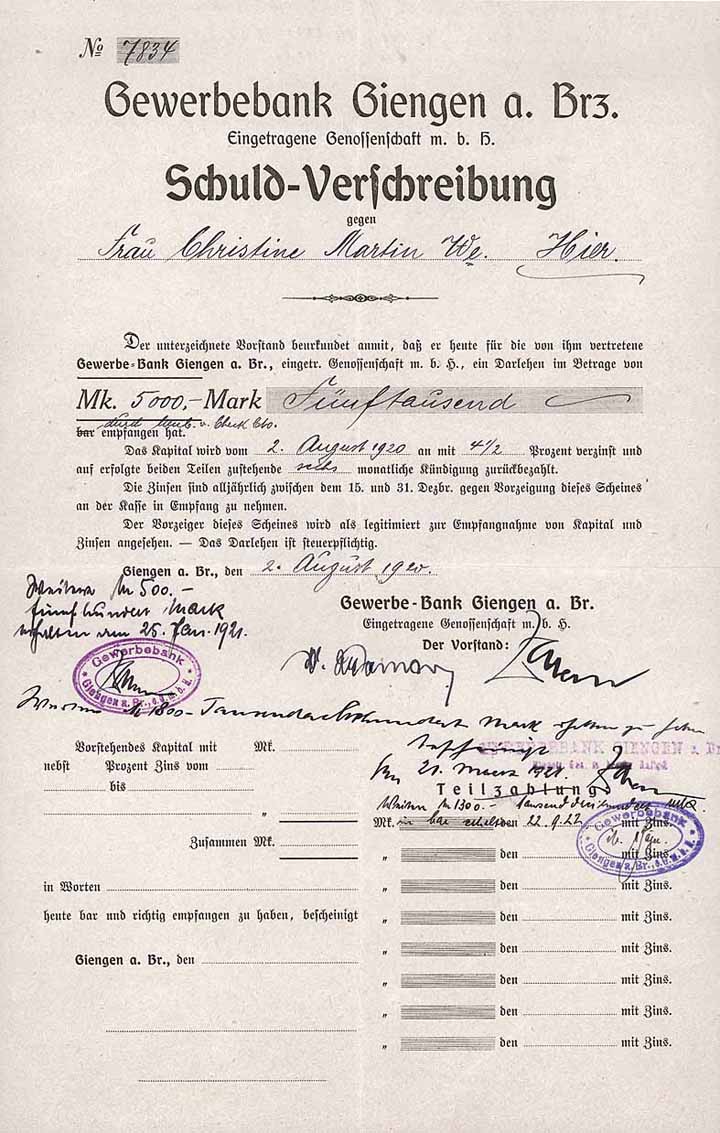 No 7834
Gewerbebank Giengen a. Brz.
Eingetragene Genossenschaft m. b. H.
Schuld-Verschreibung
gegen
Frau Christine Martin We. Hier.
Der unterzeichnete Vorstand beurkundet anmit, daß er heute für die von ihm vertretene
Gewerbe-Bank Giengen a. Br., eingetr. Genossenschaft m. b. H., ein Darlehen im Betrage von
Mk. 5000,- Mark Fünftausend
durch v. Check Cto.
bar empfangen hat.
Das Kapital wird vom 2. August 1920 an mit 4 1/2 Prozent verzinst und
auf erfolgte beiden Teilen zustehende sechs monatliche Kündigung zurückbezahlt.
Die Zinsen sind alljährlich zwischen dem 15. und 31. Dezbr. gegen Vorzeigung dieses Scheines
an der Kasse in Empfang zu nehmen.
Der Vorzeiger dieses Scheines wird als legitimiert zur Empfangnahme von Kapital und
Zinsen angesehen. — Das Darlehen ist steuerpflichtig.
Giengen a. Br., den 2. August 1920.
Weitere M 500.-
fünfhundert Mark
erhalten am 25. Jan. 1921.
Gewerbebank
Giengen a. Br., e. G. m. b. H.
Gewerbe-Bank Giengen a. Br.
Eingetragene Genossenschaft m. b. H.
Der Vorstand:
Weitere M 1800- Tausendachthundert Mark
GEWERBEBANK GIENGEN a. Br.
21. März 1921.
Vorstehendes Kapital mit Mk.
nebst Prozent Zins vom
bis
"
Zusammen Mk.
in Worten
heute bar und richtig empfangen zu haben, bescheinigt
Giengen a. Br., den
Teilzahlung
Weitere M 1300.- Tausenddreihundert Mk
Mk. in bar erhalten den 22.9.22 mit Zins.
Gewerbebank
Giengen a. Br., e. G. m. b. H.
" den mit Zins.
" den mit Zins.
" den mit Zins.
" den mit Zins.
" den mit Zins.
" den mit Zins.
" den mit Zins.